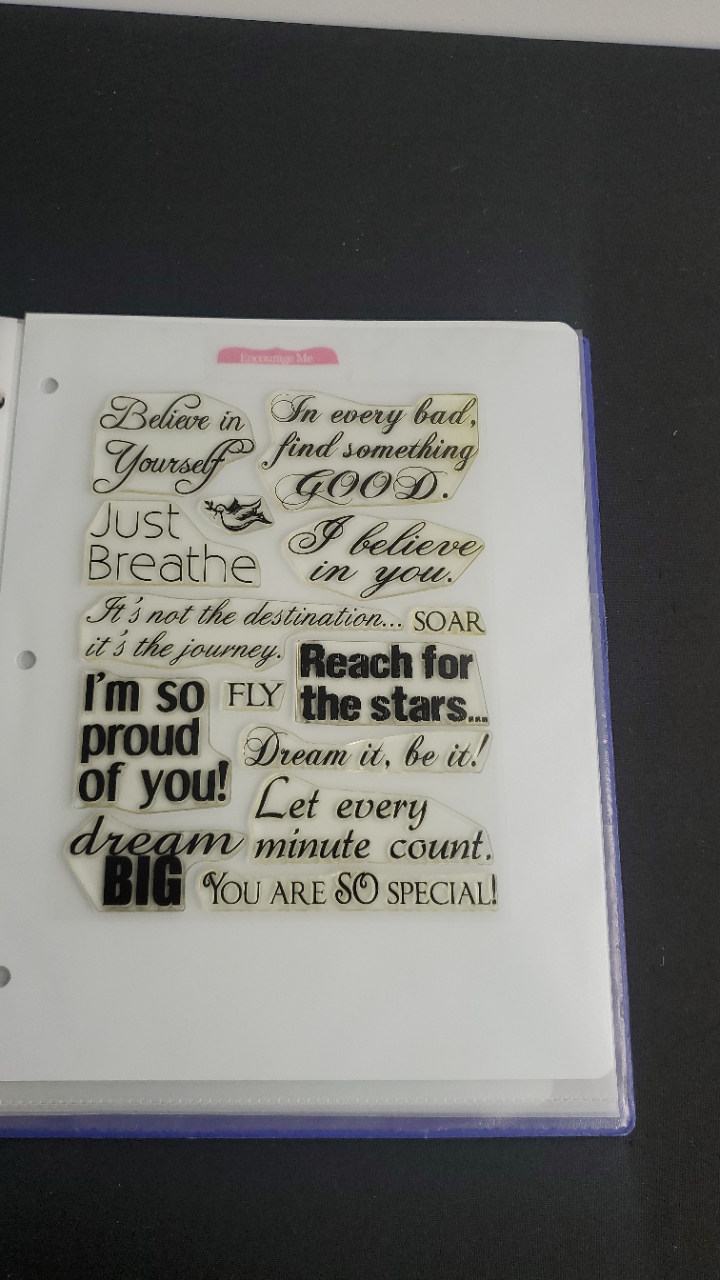 Encourage Me
Believe in
Yourself
In every bad,
find something
GOOD.
Just
Breathe
I believe
in you.
It's not the destination...
it's the journey.
SOAR
Reach for
the stars...
I'm so
proud
of you!
FLY
Dream it, be it!
Let every
minute count.
dream
BIG
YOU ARE SO SPECIAL!